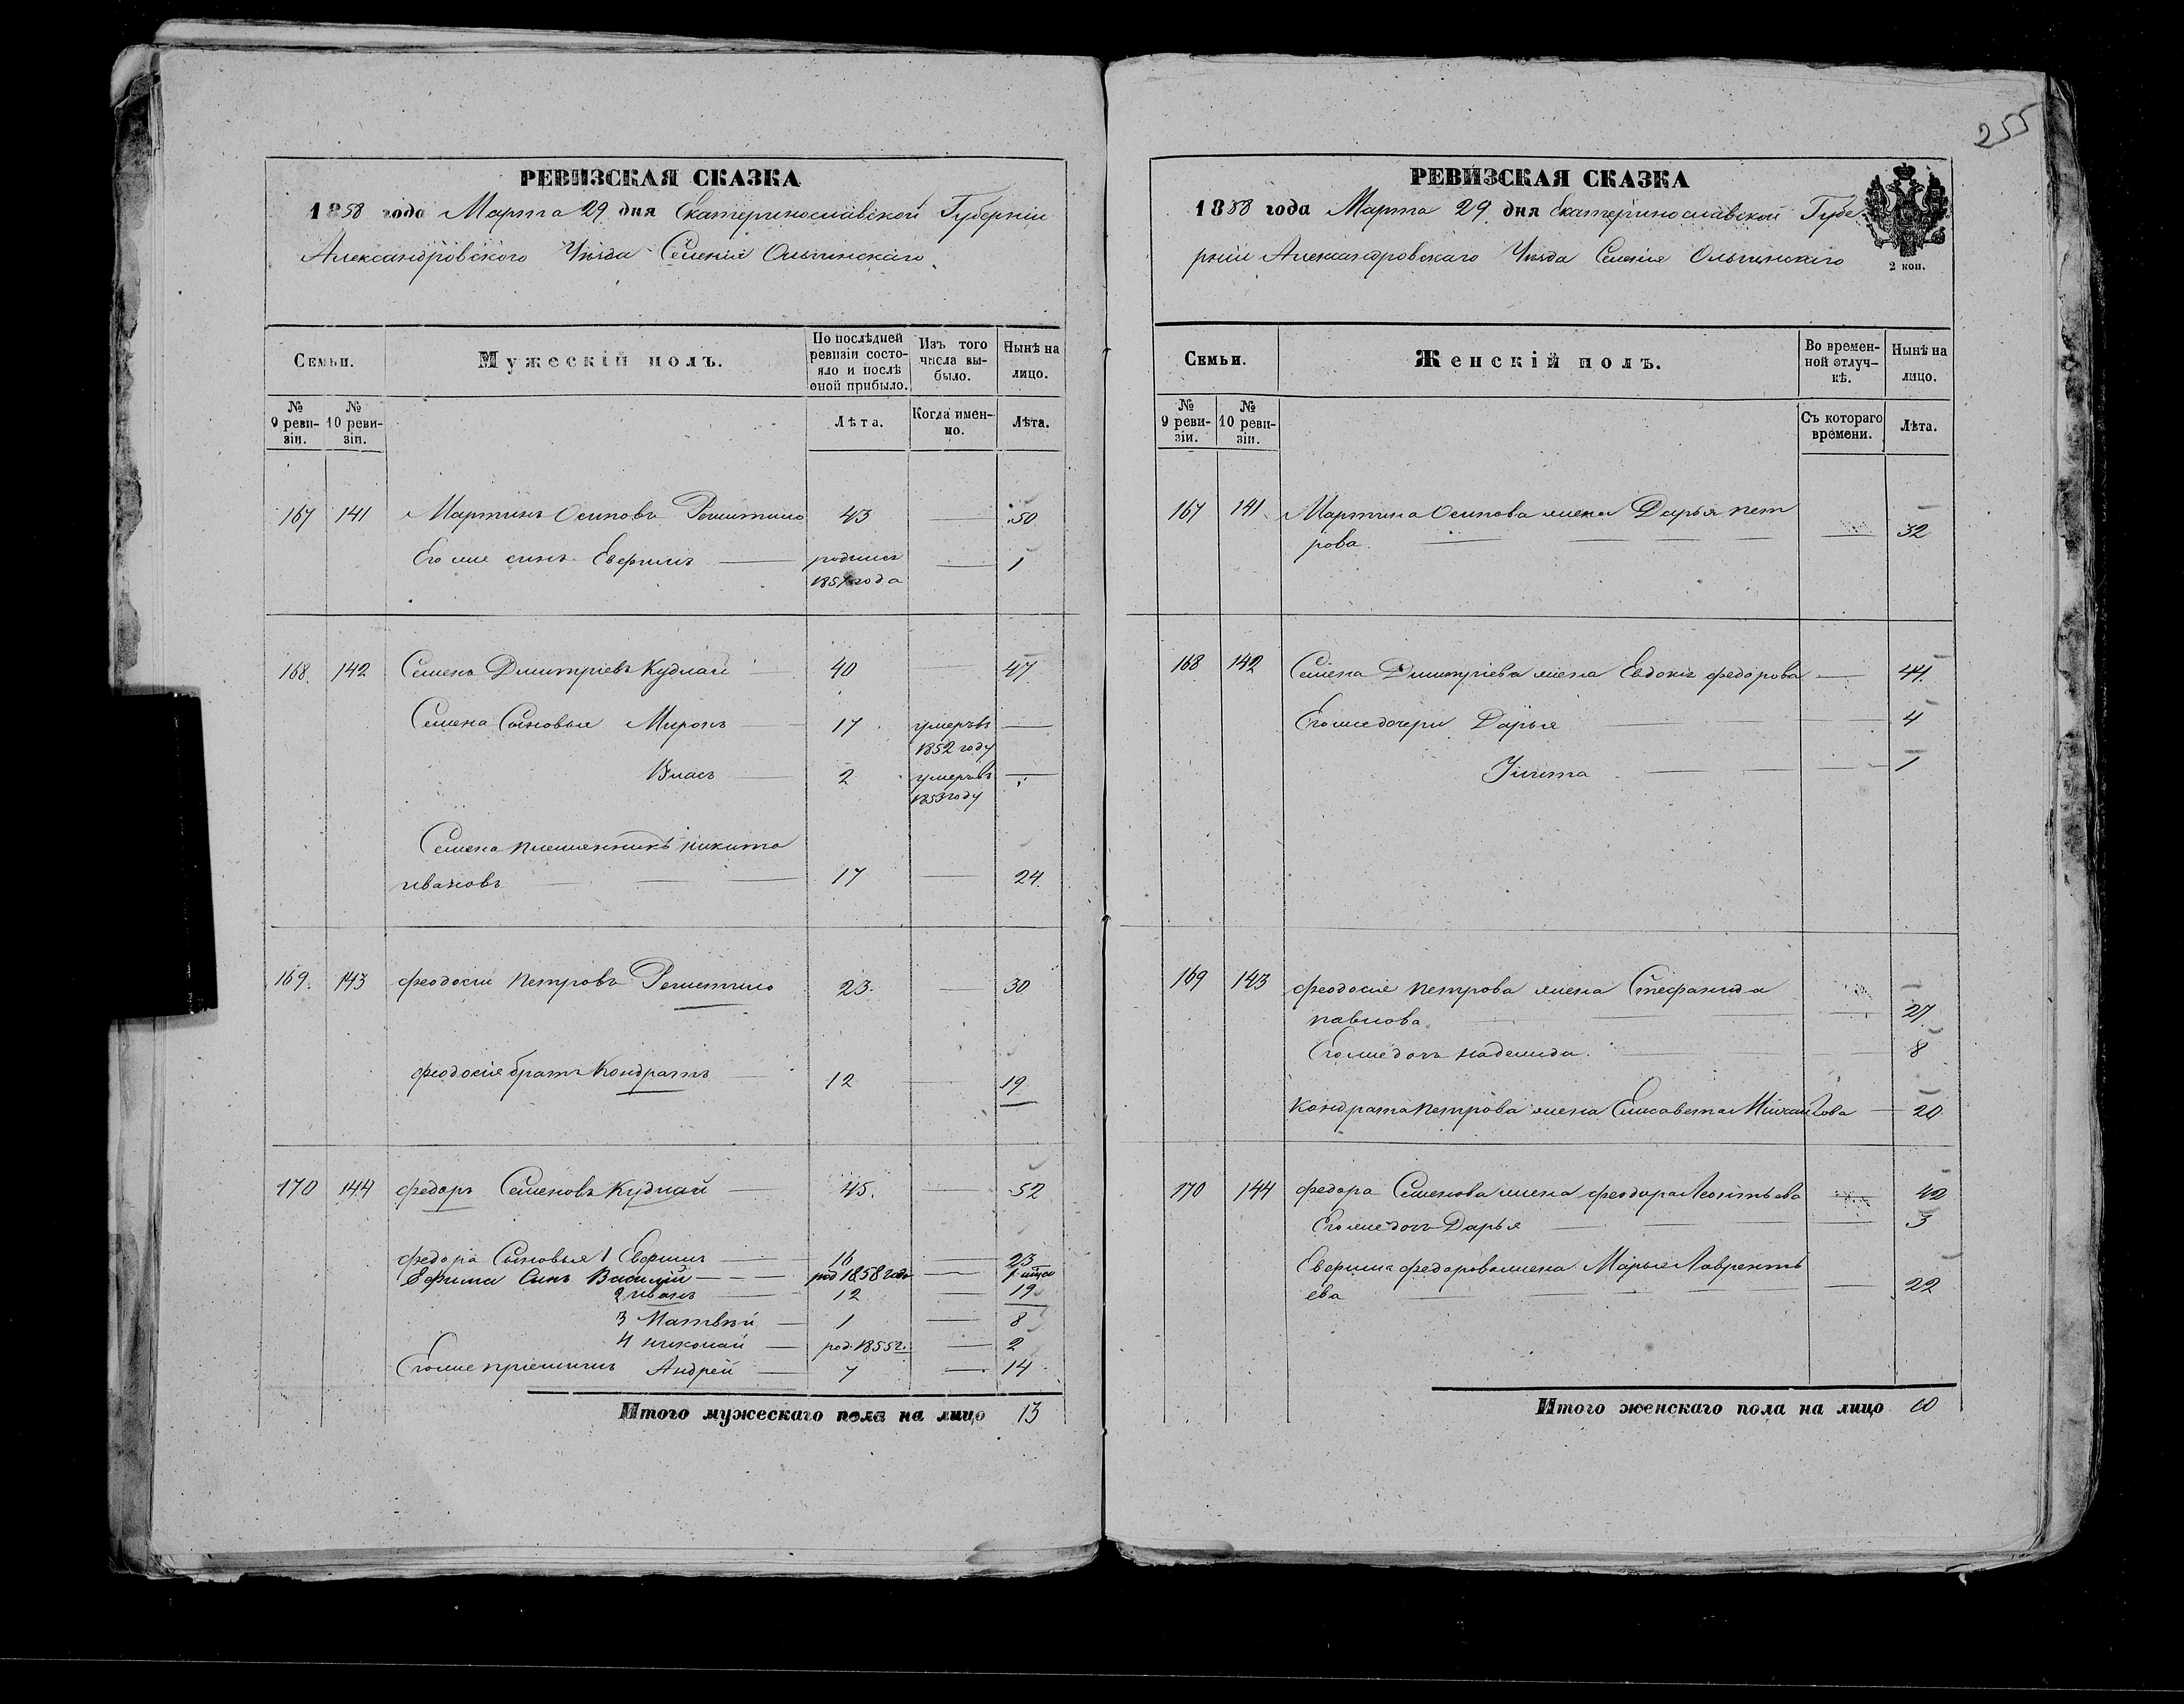 255
РЕВИЗСКАЯ СКАЗКА
1858 года Марта 29 дня Екатеринославской Губерніи
Александровского Уѣзда Селенія Ольгинскаго
Семьи.
Мужескій полъ.
По послѣдней ревизіи состояло и послѣ оной прибыло.
Изъ того числа выбыло.
Нынѣ на лицо.
№ 9 ревизіи.
№ 10 ревизіи.
Лѣта.
Когда именно.
Лѣта.
167 141 Мартинъ Осиповъ 43 — 50
Его же сынъ Евфимъ — родился — 1
1857 года
168. 142 Семенъ Дмитріевъ Кудлай — 40 — 47
Семена Сыновья Миронъ — 17 умеръ въ —
1852 году
Власъ — 2 умеръ въ —
1853 году
Семена племянникъ никита
ивановъ — — 17 — 24.
169. 143 феодосій петровъ 23. — 30
феодосія братъ Кондратъ — 12 — 19
170 144 федоръ Семеновъ Кудлай — 45. — 52
федора Сыновья 1 Евфимъ — 16 — 23
Ефима Сынъ Василій — — — род 1858 года —
2 иванъ — 12 — 19
3 Матвѣй — 1 — 8
4 николай — род. 1855 г. — 2
Его же пріемышъ Андрей — 7 — 14
Итого мужескаго пола на лицо 13
РЕВИЗСКАЯ СКАЗКА
1858 года Марта 29 дня Екатеринославской Губе
рніи Александровскаго Уѣзда Селенія Ольгинскаго
2 коп.
Семьи.
Женскій полъ.
Во временной отлучкѣ.
Нынѣ на лицо.
№ 9 ревизіи.
№ 10 ревизіи.
Съ котораго времени.
Лѣта.
167 141 Мартина Осипова жена Дарья пет
рова — — — — 32
168 142 Семена Дмитріева жена Евдокія федорова — 44.
Его же дочери Дарья — 4
Улита — — — 1
169 143 феодосія петрова жена Стефанида
павлова — — — 27
Его же дочь надежда. — 8
кондрата петрова жена Елисавета Михайлова — 20
170 144 федора Семенова жена феодора Леонтьева — 42
Его же дочь Дарья — — 3
Евфима федорова жена Марья Лаврентъ
ева — — — — 22
Итого женскаго пола на лицо 10